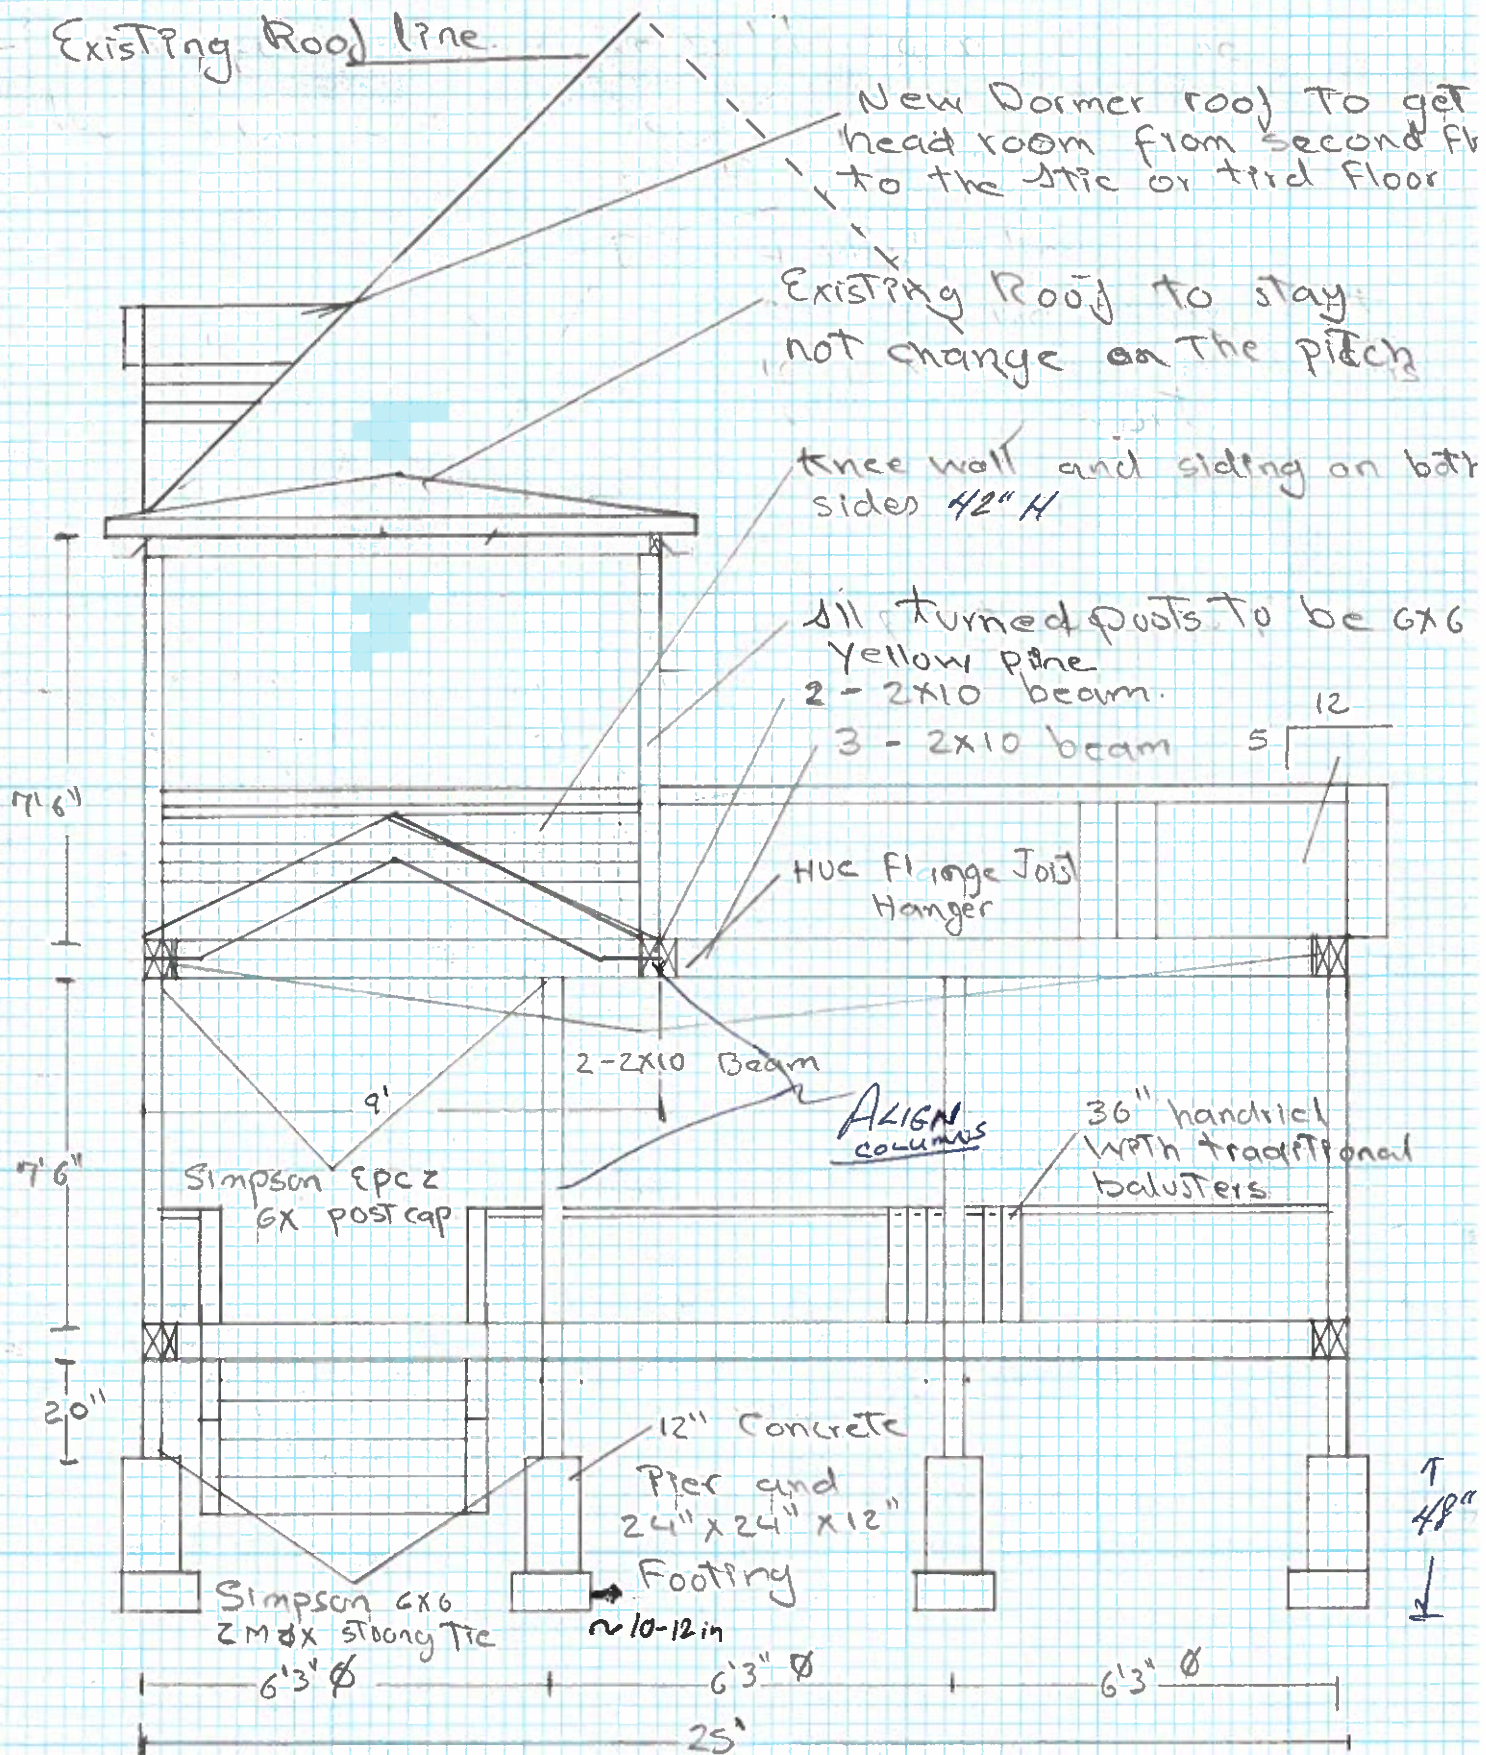 Existing Roof line
New Dormer roof To get
head room from second Fl
to the Atic or tird Floor
Existing Roof to stay
not change on The pitch
Knee wall and siding on both
sides 42" H
All turned posts To be 6x6
Yellow pine
2 - 2x10 beam.
3 - 2x10 beam
12
5
7'6"
HUC Flange Joist
Hanger
2-2x10 Beam
9'
ALIGN
COLUMNS
36" handriel
With traditional
balusters
7'6"
Simpson EPCZ
6X post cap
20"
12" Concrete
Pier and
24" x 24" x 12"
Footing
~10-12 in
48"
Simpson 6x6
ZMAX strong Tie
6'3" Ø
6'3" Ø
6'3" Ø
25'